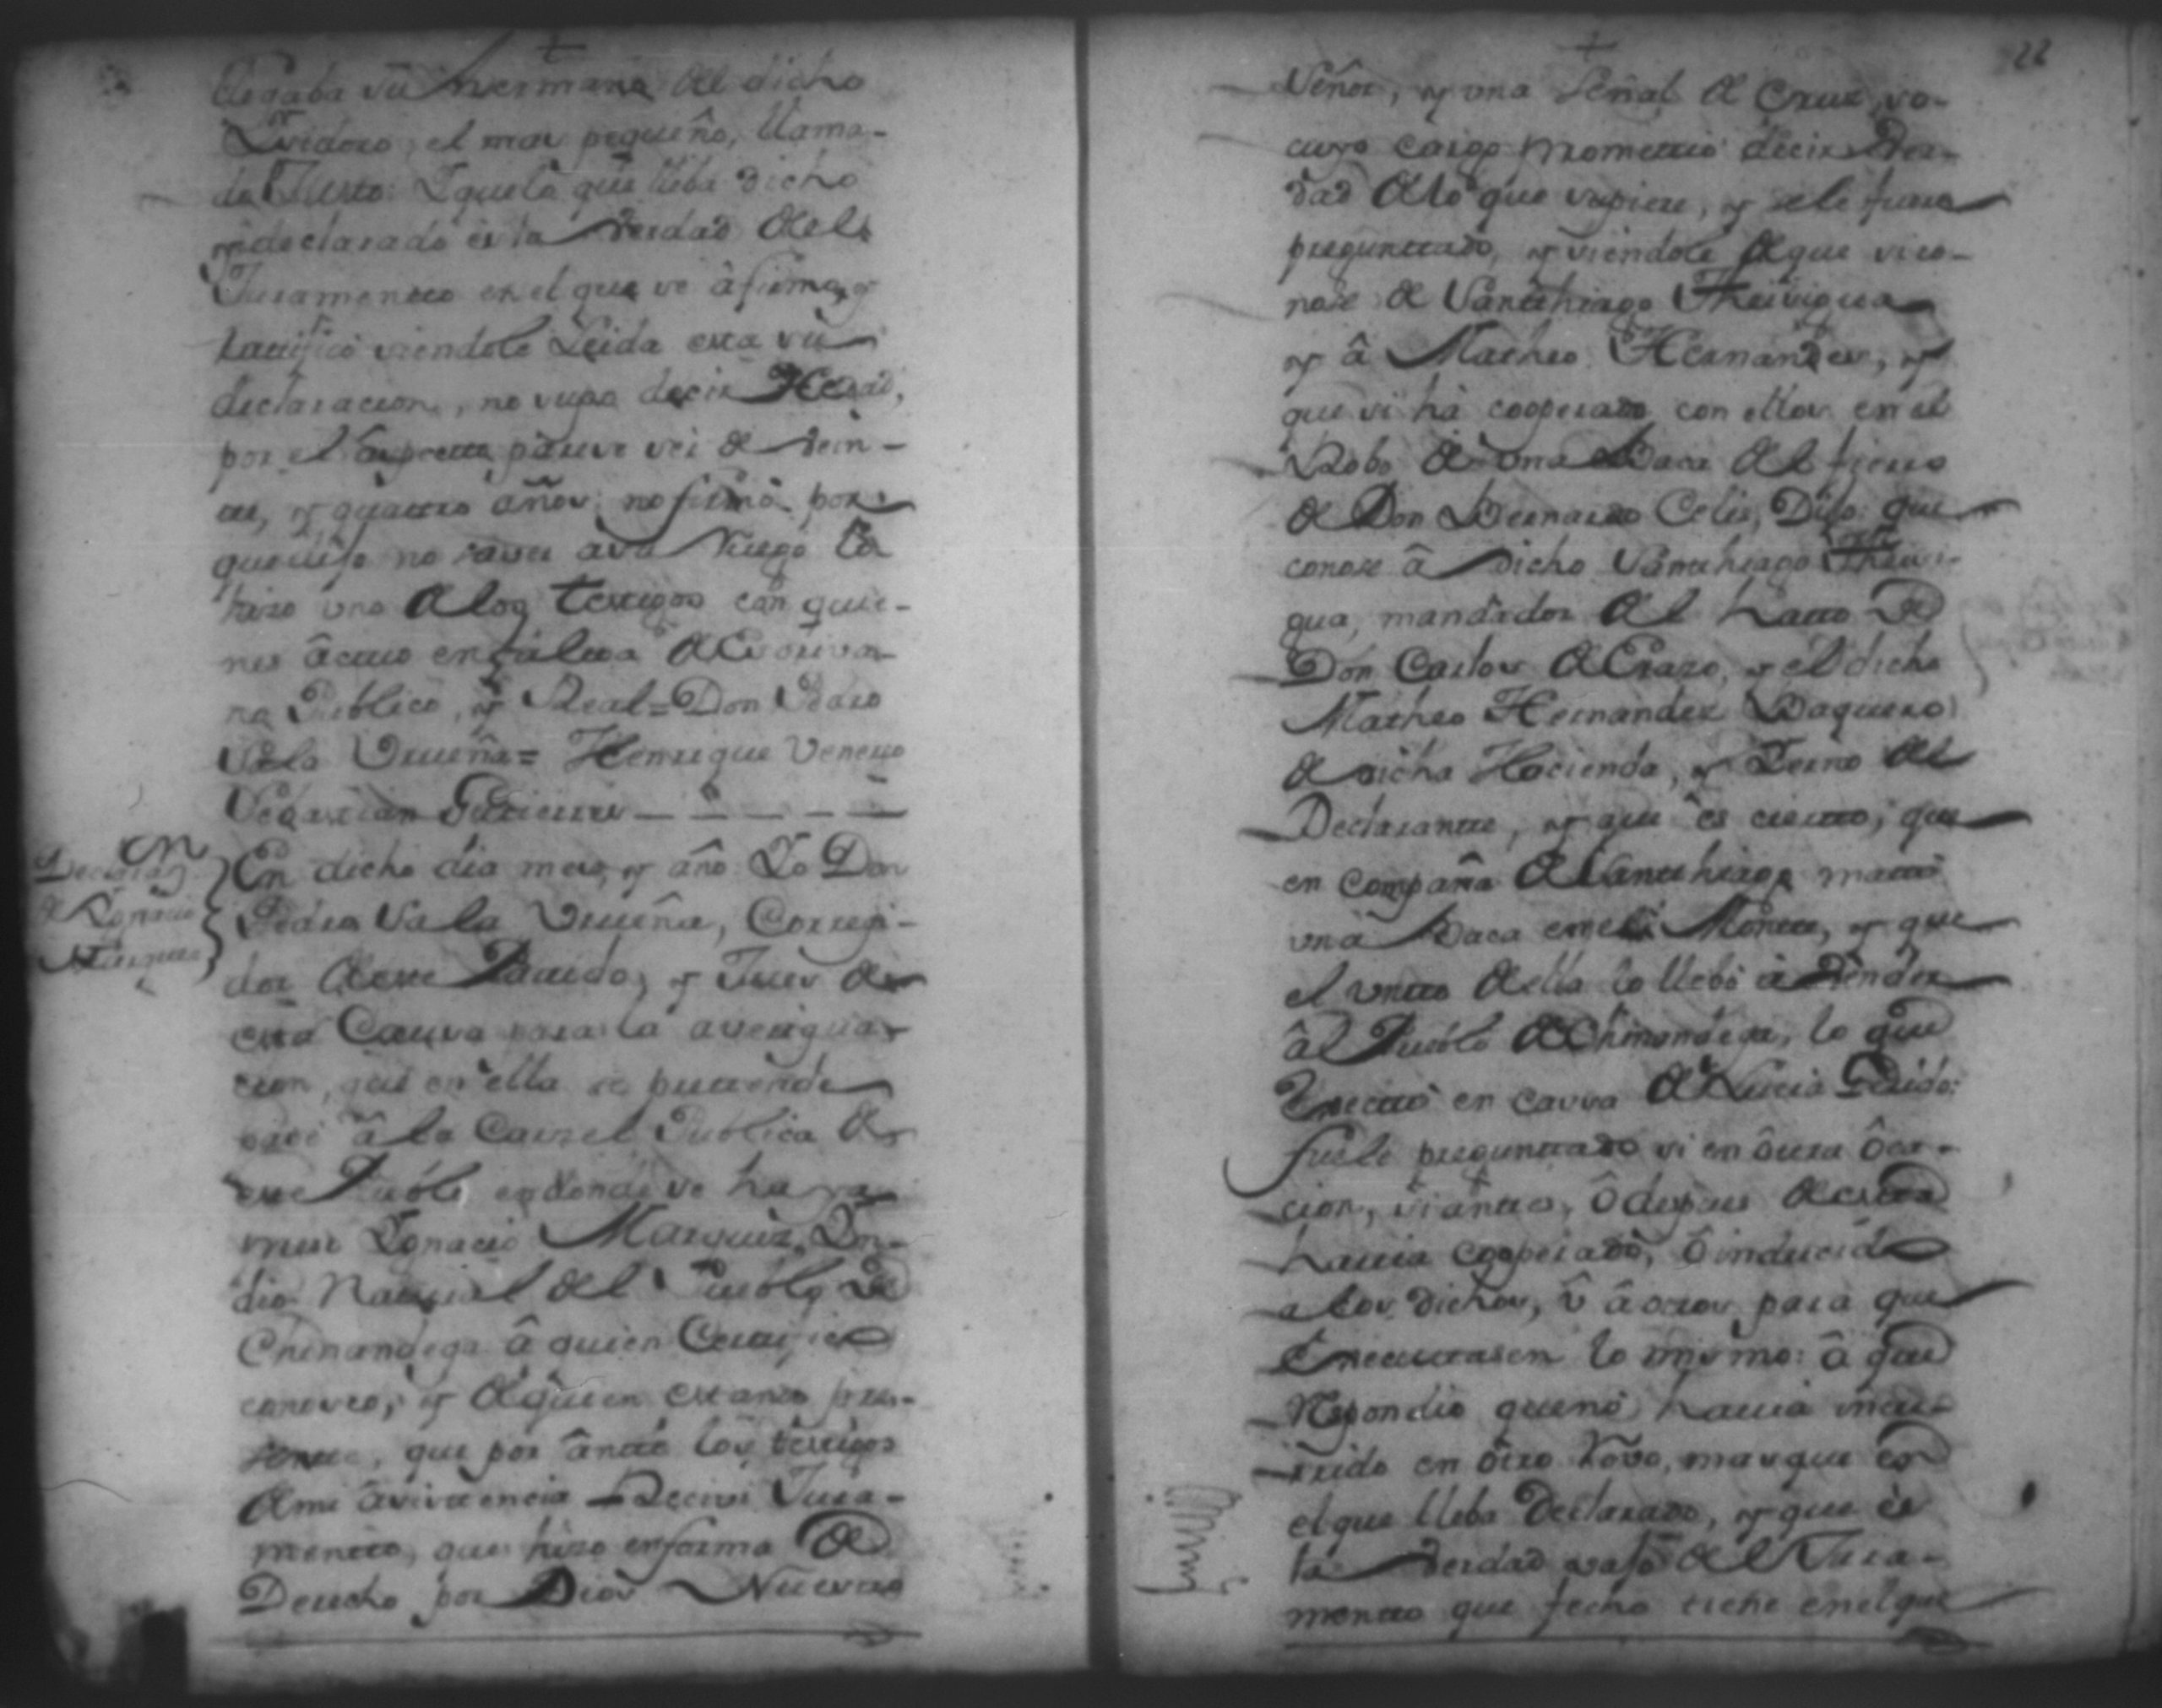 llegaba su hermano del dicho
Ysidoro, el mas pequeño, llama-
do Justo: Yque lo que lleba dicho
y declarado es la verdad del
Juramentto en el que se afirma, y
rattificó siendole Leida esta su
declaracion, no supo decir Hedad,
por el aspectto parese ser de vein-
tte, y quattro años; no firmó por
que dijo no saver a su Ruego lo
hizo uno de los testigos con quie-
nes âctuo en faltta de Escriva-
no Publico, y Real= Don Pedro
Sala Urueña= Henrique Venerio
Sebastian Gutierres
Declaraz.on
de Ygnacio
Marques
En dicho dia mes, y año Yo Don
Pedro Sala Urueña, Corregi-
dor de este Parttido, y Jues de
esta Causa para la averigua-
cion, que en ella se prettende
pasé â la Carzel Publica de
este Pueblo en donde se ha
Ygnacio Marquez, Yn-
dio Natural del Pueblo de
Chinandega â quien Certtifico
conosco, y de quien estando pre-
sentte, que por ântte los testigos
de mi asistencia Recivi Jura-
mentto, que hizo en forma de
Derecho por Dios Nuestro
22
Señor, y una señal de Cruz, so-
cuyo cargo promettió decir Ver-
dad de lo que supiere, y se le fuere
preguntado, y siendole de que si co-
nose de Santhiago
y â Matheo Hernandes, y
que si ha cooperado con ellos en el
Robo de una Baca del fierro
de Don Bernardo Celis, Dijo: que
conose â dicho Santhiago
gua, mandador del hatto de
Don Carlos de Erazo, y el dicho
Matheo Hernandez Baquero
de dicha Hacienda, y Yerno del
Declarantte, y que es ciertto, que
en compaña de Santhiago mattó
una Baca en el Montte, y que
el untto de ella lo llebó â Vender
âl Pueblo de Chinandega, lo que
Executtó en casa de Lucia
fuele preguntado si en ôtra ôca-
cion, si anttes, ô despues de esta
havia cooperado, ô inducido
a los dichos, û â otros para que
Executtasen lo mismo: â que
Respondió que no havia incu-
rrido en ôtro Rovo, mas que en
el que lleba Declarado, y que es
la Verdad vajo del Jura-
mentto que fecho tiene en el que